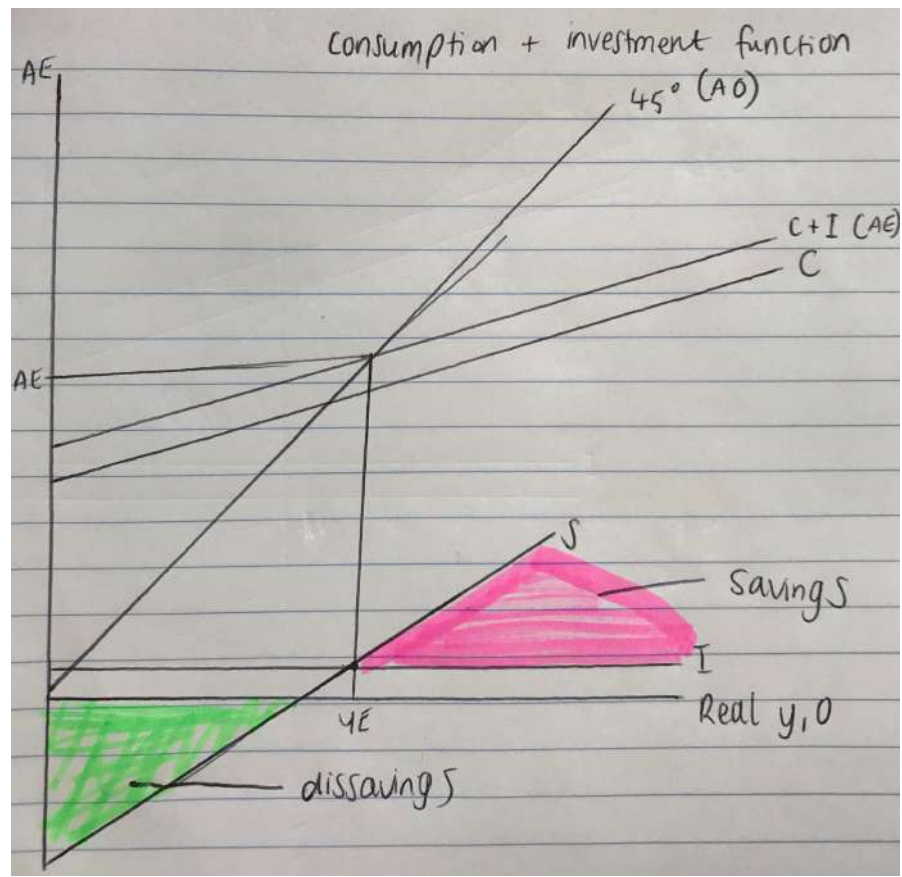 consumption + investment function
AE
45° (AO)
C+I (AE)
C
AE
S
savings
I
YE
Real y,O
dissavings